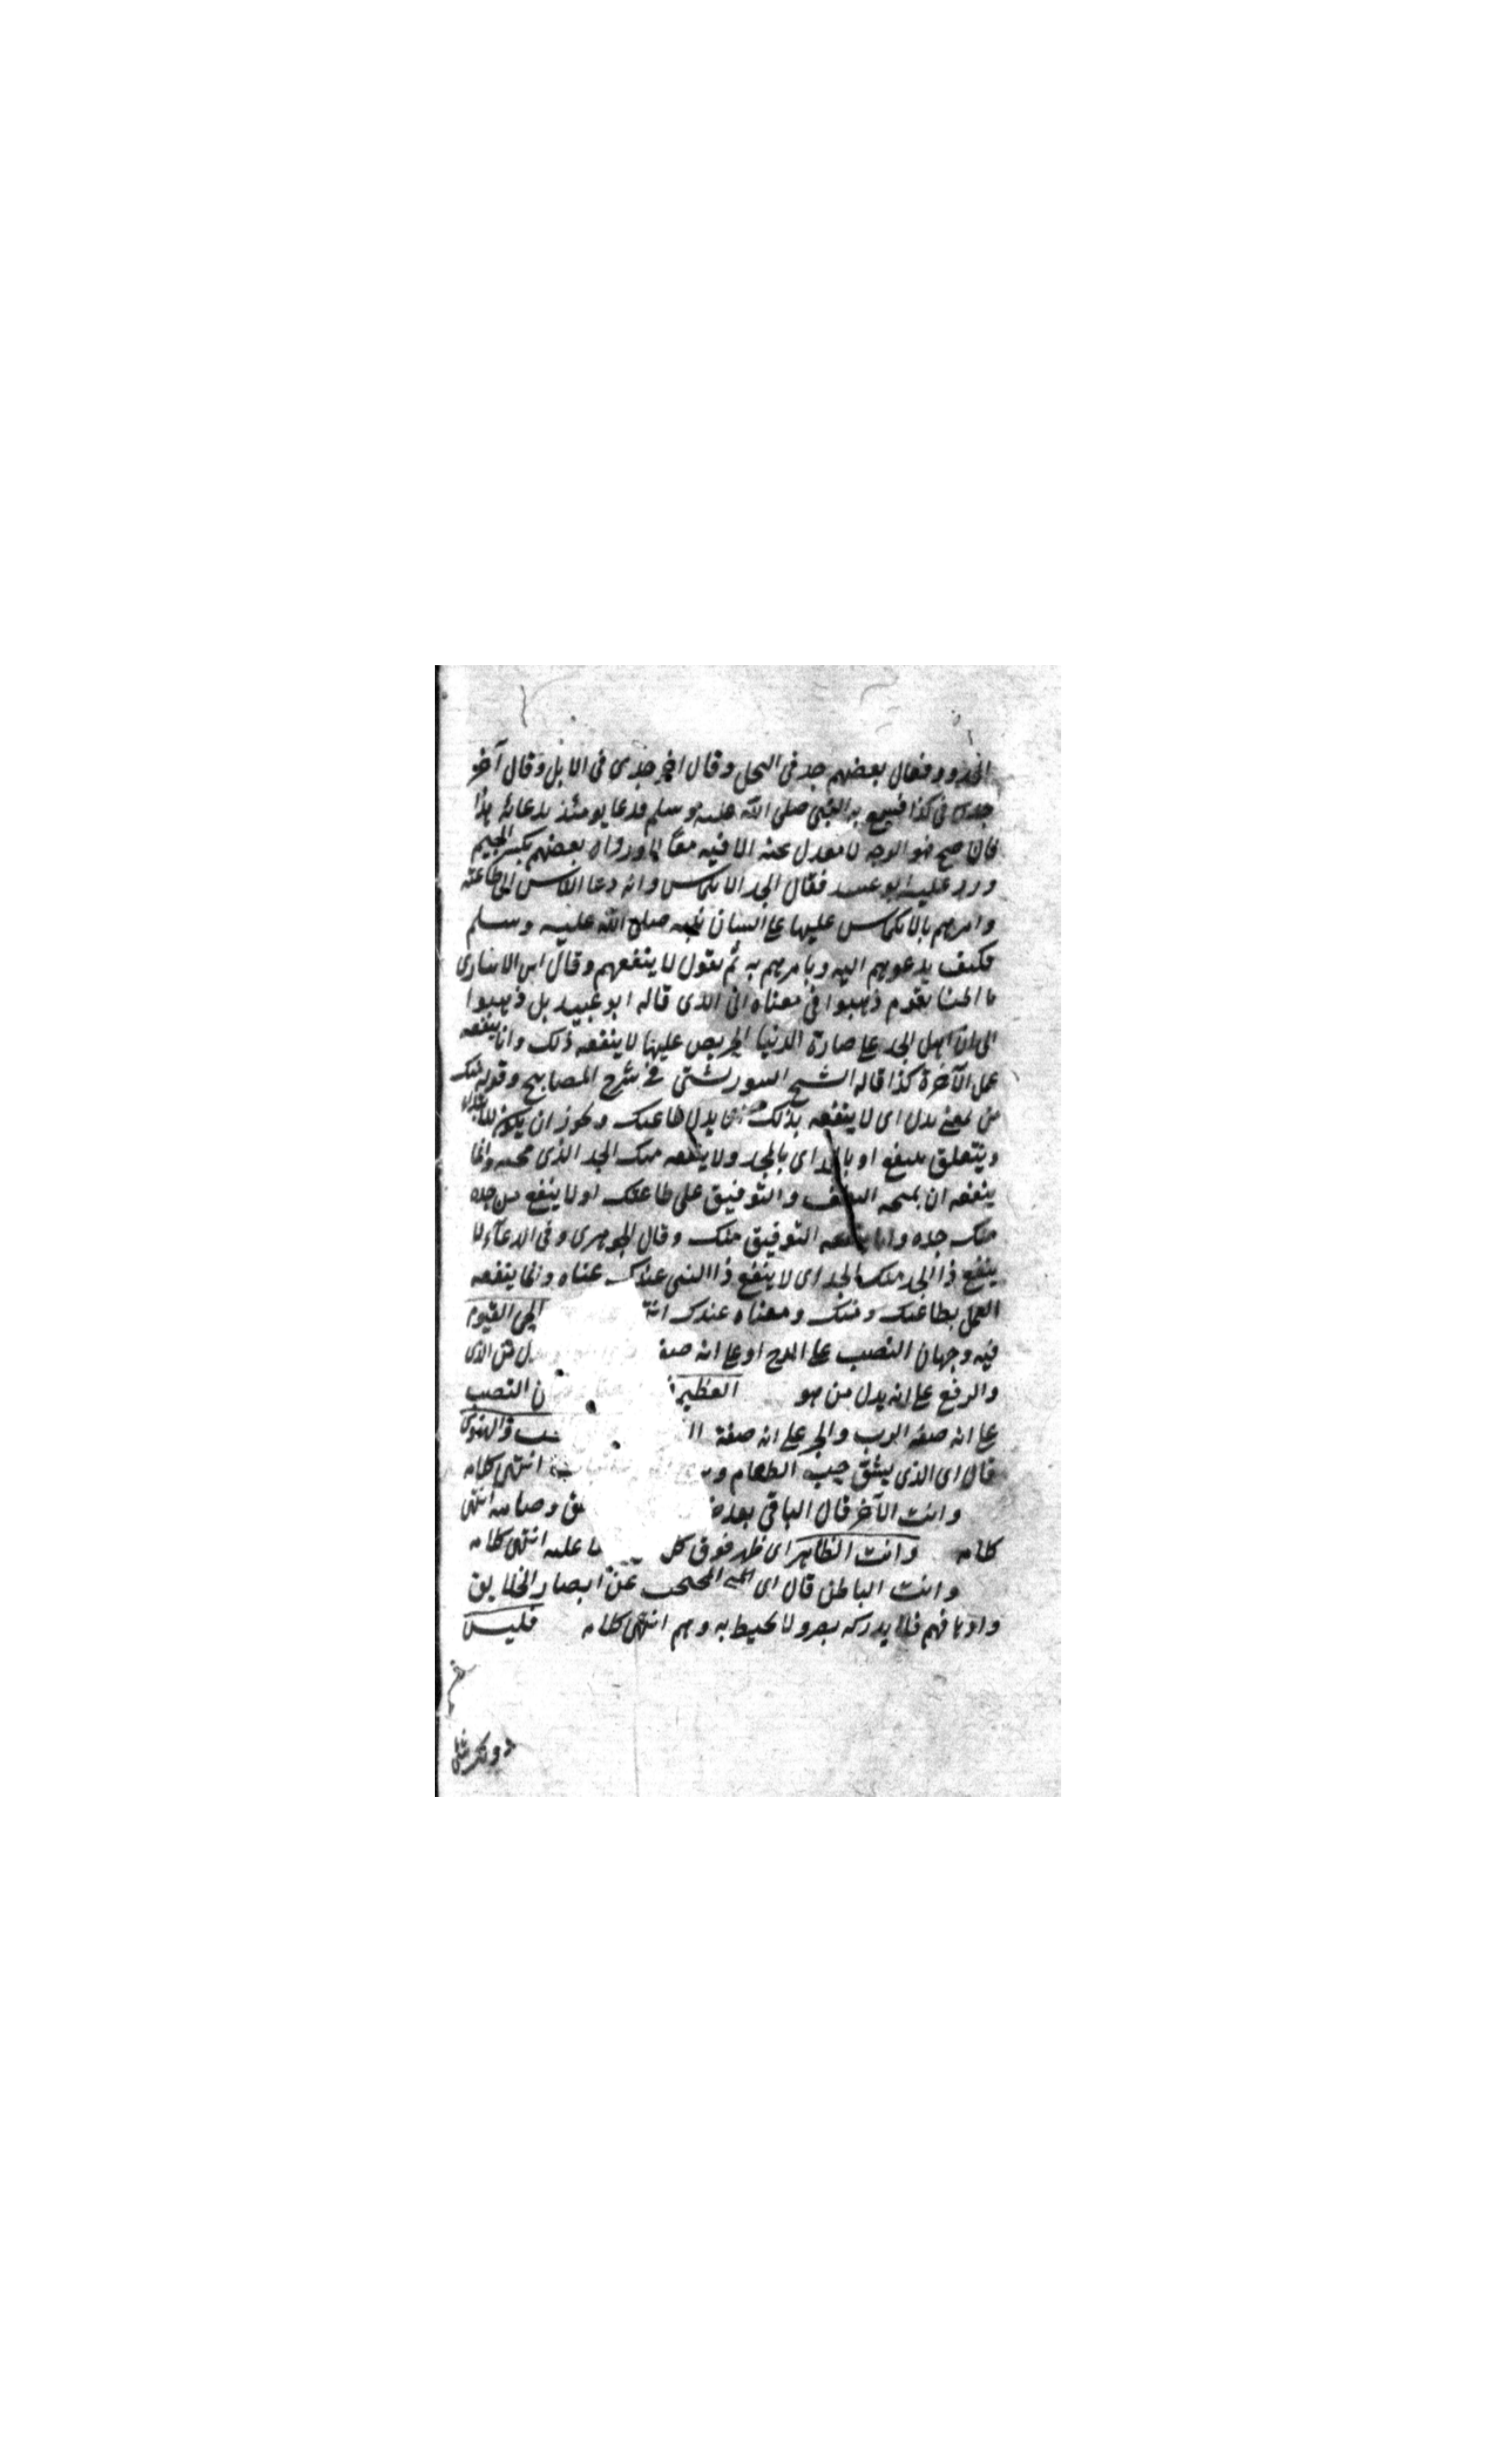 فقال بعضهم جد فى النخل وقال اخر جدى فى الابل وقال آخر
جدى فى كذا فسمع به النبى صلى الله عليه وسلم فدعا يومئذ بدعائه هذا
فان صح فهو الوجه لا معدل عنه الا فيه ورواه بعضهم بكسر الجيم
ورد عليه ابو عبيد فقال الجد الانكماس وانه دعا الناس الى طاعته
وامرهم بالانكماس عليها على لسان نبيه صلى الله عليه وسلم
فكيف يدعوهم اليه ويامرهم به ثم يقول لا ينفعهم وقال ابن الانبارى
ما الحنا بقوم ذهبوا فى معناه الى الذى قاله ابو عبيد بل ذهبوا
الى ان اهل الجد على الدنيا الحريص عليها لا ينفعه ذلك وانما ينفعه
عمل الآخرة كذا قاله الشيخ التوربشتى فى شرح المصابيح وقوله منك
من بمعنى بدل اى لا ينفعه بذلك اى بدل طاعتك ويجوز ان يكون
ويتعلق بينفع او بالجد اى بالجد ولا ينفعه منك الجد الذى وانما
ينفعه ان اللطف والتوفيق على طاعتك او لا ينفع من جده
منك جده وانما ينفعه التوفيق منك وقال الجوهرى وفى الدعاء لا
ينفع ذا الجد منك الجد اى لا ينفع ذا الغنى عندك غناه وانما ينفعه
العمل بطاعتك ومنك ومعناه عندك الحى القيوم
فيه وجهان النصب على المدح او على انه صفة الذى
والرفع على انه بدل من هو العظيم النصب
على انه صفة الرب والجر على انه صفة
قال اى الذى يشق حب الطعام انتهى كلامه
وانت الآخر قال الباقى بعد انتهى
كلامه وانت الظاهر اى ظهر فوق كل عليه انتهى كلامه
وانت الباطن قال اى المحتجب عن ابصار الخلايق
واوهامهم فلا يدركه بصر ولا يحيط به وهم انتهى كلامه فليس